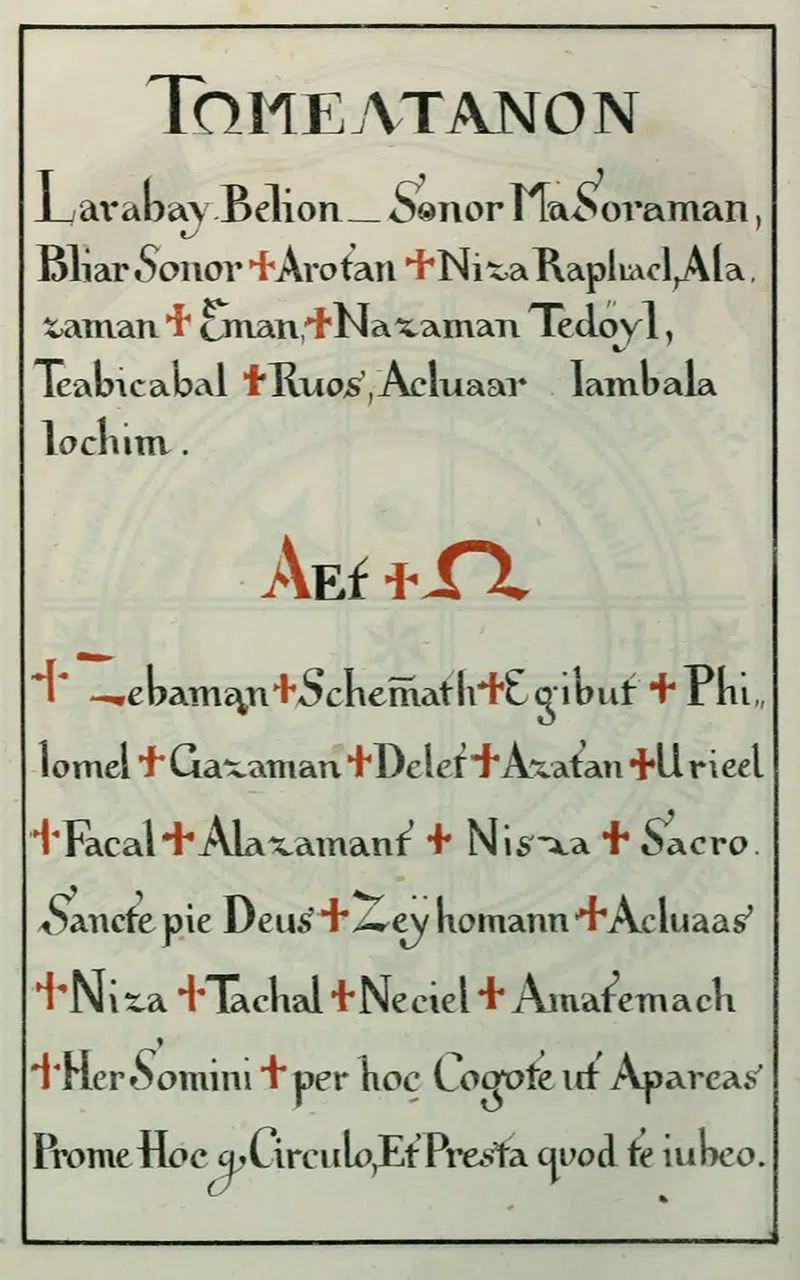 TΩMEΛTANON
Larabay. Belion_Sonor MaSoraman,
Bliar Sonor ✝Arotan ✝Niza Raphael, Ala.
zaman ✝ Eman,✝Nazaman Tedoÿl,
Teabicabal ✝Ruos, Acluaar Iambala
Iochim.
A Et ✝ Ω
✝ Zebaman✝Schem̄ath✝Egibut ✝ Phi„
lomel ✝Gazaman ✝Delet✝Azatan ✝Urieel
✝Facal✝Alazamant ✝ Nis-za ✝ Sacro.
Sancte pie Deus✝Zeÿhomann✝Acluaas
✝Niza ✝Tachal✝Neciel✝Amatemach
✝Her Somini ✝per hoc Cogote ut Apareas
Prome Hoc g, Circulo, Et Presta quod te iubeo.